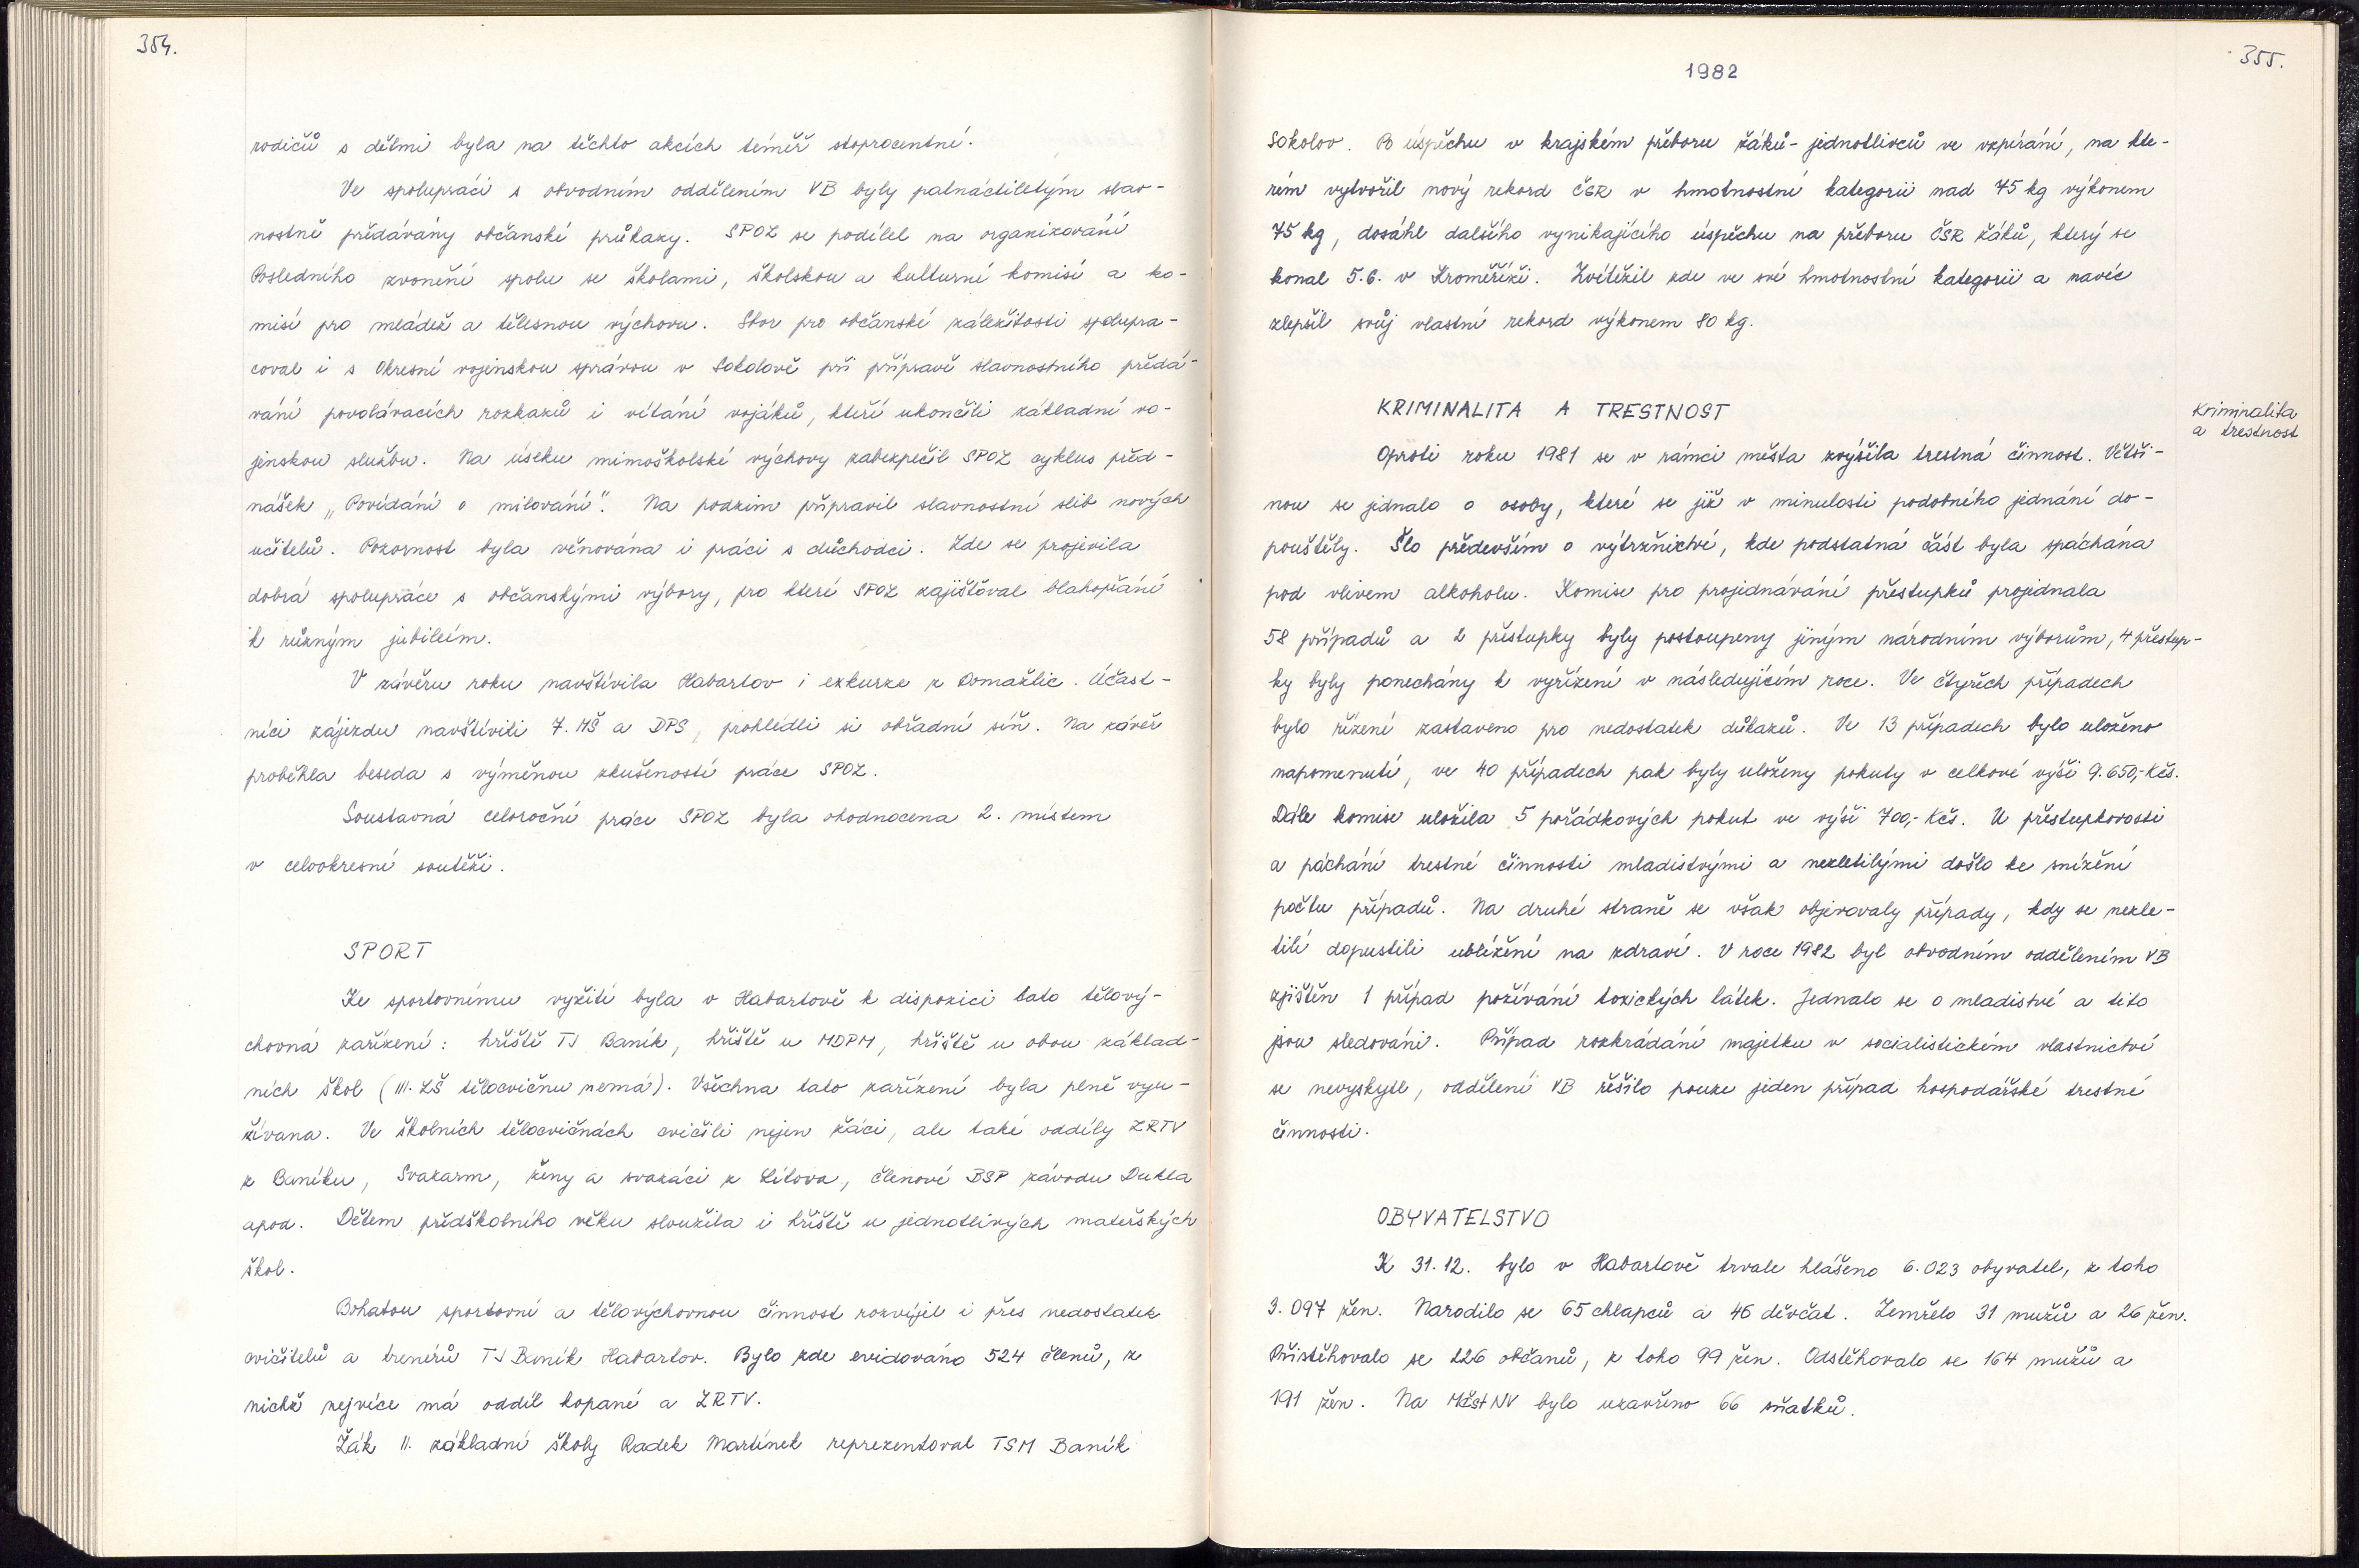 354.
rodičů s dětmi byla na těchto akcích téměř stoprocentní.
Ve spolupráci s obvodním oddělením VB byly patnáctiletým slav-
nostně předávány občanské průkazy. SPOZ se podílel na organizování
Posledního zvonění spolu se školami, školskou a kulturní komisí a ko-
misí pro mládež a tělesnou výchovu. Sbor pro občanské záležitosti spolupra-
coval i s Okresní vojenskou správou v Sokolově při přípravě slavnostního předá-
vání povolávacích rozkazů i vítání vojáků, kteří ukončili základní vo-
jenskou službu. Na úseku mimoškolské výchovy zabezpečil SPOZ cyklus před-
nášek „Povídání o milování“. Na podzim připravil slavnostní slib nových
učitelů. Pozornost byla věnována i práci s důchodci. Zde se projevila
dobrá spolupráce s občanskými výbory, pro které SPOZ zajišťoval blahopřání
k různým jubileím.
V závěru roku navštívila Habartov i exkurze z Domažlic. Účast-
níci zájezdu navštívili 7. MŠ a DPS, prohlédli si obřadní síň. Na závěr
proběhla beseda s výměnou zkušeností práce SPOZ.
Soustavná celoroční práce SPOZ byla ohodnocena 2. místem
v celookresní soutěži.
SPORT
Ke sportovnímu vyžití byla v Habartově k dispozici tato tělový-
chovná zařízení: hřiště TJ Baník, hřiště u MDPM, hřiště u obou základ-
ních škol (III. ZŠ tělocvičnu nemá). Všechna tato zařízení byla plně vyu-
žívána. Ve školních tělocvičnách cvičili nejen žáci, ale také oddíly ZRTV
z Baníku, Svazarm, ženy a svazáci z Lítova, členové BSP závodu Dukla
apod. Dětem předškolního věku sloužila i hřiště u jednotlivých mateřských
škol.
Bohatou sportovní a tělovýchovnou činnost rozvíjel i přes nedostatek
cvičitelů a trenérů TJ Baník Habartov. Bylo zde evidováno 524 členů, z
nichž nejvíce má oddíl kopané a ZRTV.
Žák II. základní školy Radek Martínek reprezentoval TSM Baník
355.
1982
Sokolov. Po úspěchu v krajském přeboru žáků-jednotlivců ve vzpírání, na kte-
rém vytvořil nový rekord ČSR v hmotnostní kategorii nad 75 kg výkonem
75 kg, dosáhl dalšího vynikajícího úspěchu na přeboru ČSR žáků, který se
konal 5.6. v Kroměříži. Zvítězil zde ve své hmotnostní kategorii a navíc
zlepšil svůj vlastní rekord výkonem 80 kg.
KRIMINALITA A TRESTNOST
Kriminalita
a trestnost
Oproti roku 1981 se v rámci města zvýšila trestná činnost. Větši-
nou se jednalo o osoby, které se již v minulosti podobného jednání do-
pouštěly. Šlo především o výtržnictví, kde podstatná část byla spáchána
pod vlivem alkoholu. Komise pro projednávání přestupků projednala
58 případů a 2 přestupky byly postoupeny jiným národním výborům, 4 přestup-
ky byly ponechány k vyřízení v následujícím roce. Ve čtyřech případech
bylo řízení zastaveno pro nedostatek důkazů. Ve 13 případech bylo uloženo
napomenutí, ve 40 případech pak byly uloženy pokuty v celkové výši 9.650,-Kčs.
Dále komise uložila 5 pořádkových pokut ve výši 700,- Kčs. U přestupkovosti
a páchání trestné činnosti mladistvými a nezletilými došlo ke snížení
počtu případů. Na druhé straně se však objevovaly případy, kdy se nezle-
tilí dopustili ublížení na zdraví. V roce 1982 byl obvodním oddělením VB
zjištěn 1 případ požívání toxických látek. Jednalo se o mladistvé a tito
jsou sledováni. Případ rozkrádání majetku v socialistickém vlastnictví
se nevyskytl, oddělení VB řešilo pouze jeden případ hospodářské trestné
činnosti.
OBYVATELSTVO
K 31.12. bylo v Habartově trvale hlášeno 6.023 obyvatel, z toho
3.097 žen. Narodilo se 65 chlapců a 46 děvčat. Zemřelo 31 mužů a 26 žen.
Přistěhovalo se 226 občanů, z toho 99 žen. Odstěhovalo se 164 mužů a
191 žen. Na MěstNV bylo uzavřeno 66 sňatků.